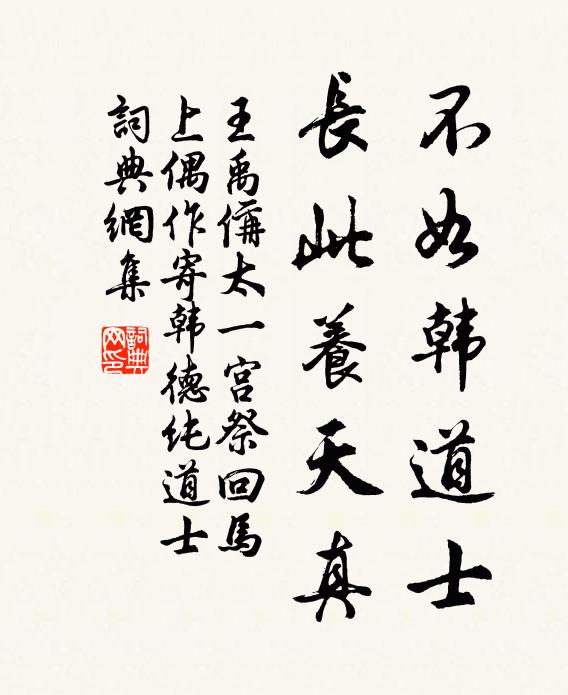 不如韩道士
長此養天真
王禹偁太一宫祭回馬
上偶作寄韩德纯道士
詞典網集
詞典网印